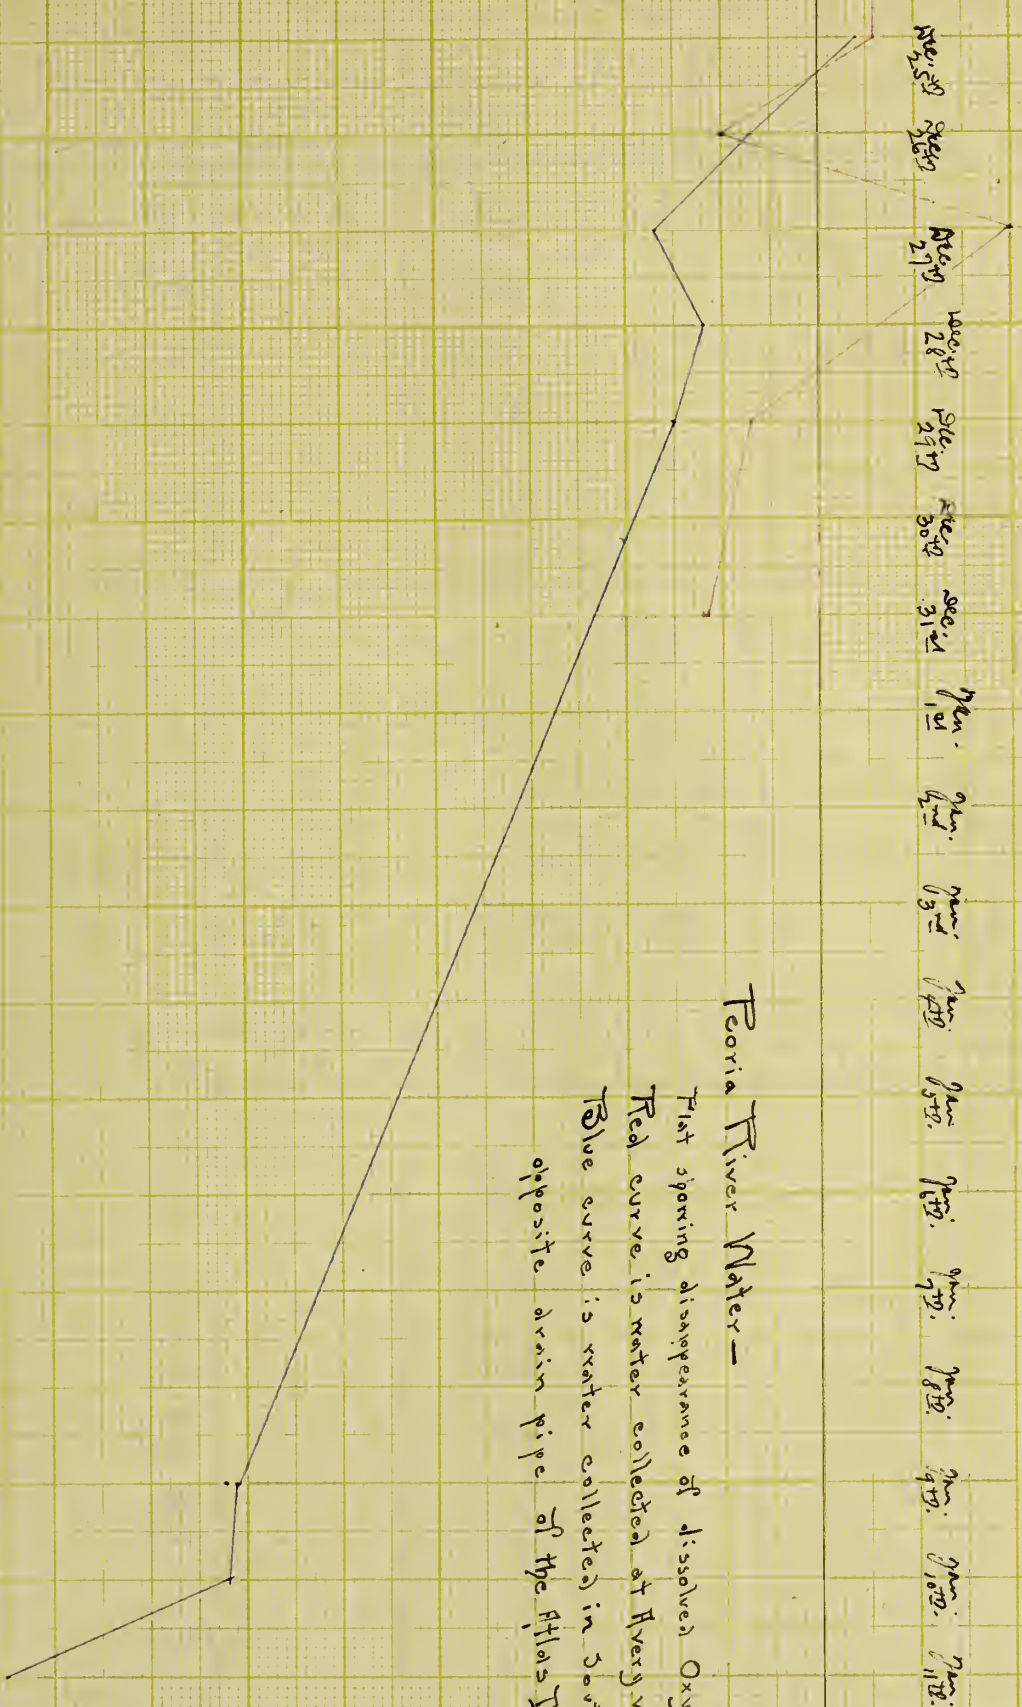 Dec. 25th
Dec. 26th
Dec. 27th
Dec. 28th
Dec. 29th
Dec. 30th
Dec. 31st
Jan. 1st
Jan. 2nd
Jan. 3rd
Jan. 4th
Jan. 5th.
Jan. 6th.
Jan. 7th.
Jan. 8th.
Jan. 9th.
Jan. 10th.
Jan. 11th.
Peoria River Water—
Plat showing disappearance of dissolved Oxy
Red curve is water collected at Avery
Blue curve is water collected in Sou
opposite drain pipe of the Atlas